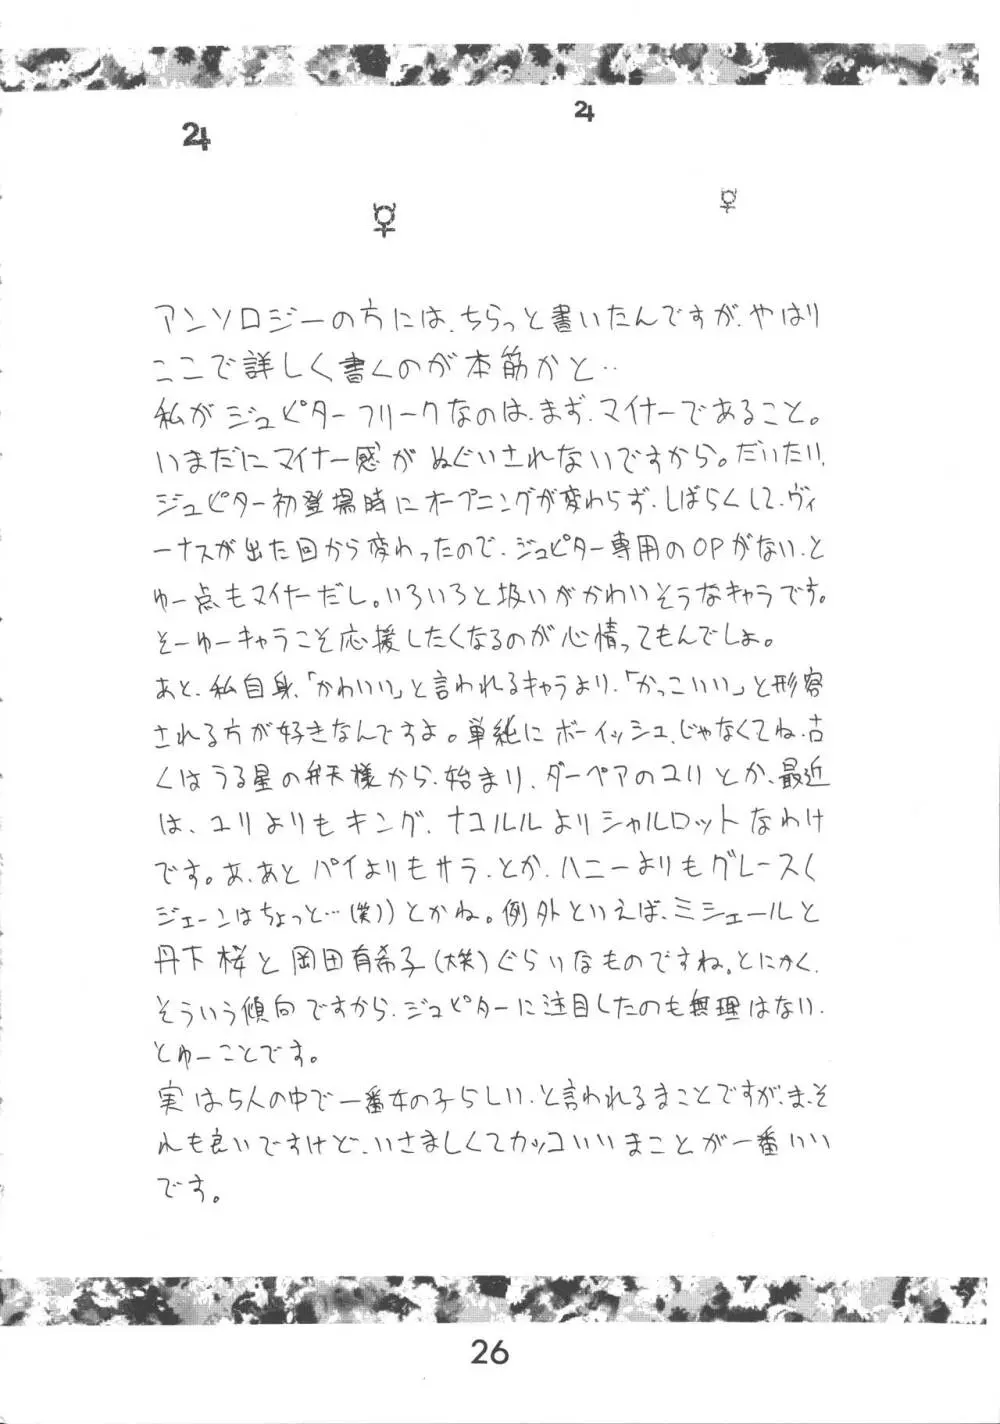 アンソロジーの方には、ちらっと書いたんですが、やはり
ここで詳しく書くのが本筋かと‥
私がジュピターフリークなのは、まず、マイナーであること。
いまだにマイナー感がぬぐいきれないですから。だいたい、
ジュピター初登場時にオープニングが変わらず、しばらくして、ヴィ
ーナスが出た回から変わったので、ジュピター専用のOPがない、と
ゆー点もマイナーだし。いろいろと扱いがかわいそうなキャラです。
そーゆーキャラこそ応援したくなるのが心情ってもんでしょ。
あと、私自身、「かわいい」と言われるキャラより、「かっこいい」と形容
される方が好きなんですよ。単純にボーイッシュ、じゃなくてね、古
くはうる星の弁天様から、始まり、ダーペアのユリとか、最近
は、ユリよりもキング、ナコルルよりシャルロットなわけ
です。あ、あとパイよりもサラ、とか、ハニーよりもグレース(
ジェーンはちょっと…(笑))とかね。例外といえば、ミシェールと
丹下桜と岡田有希子(大笑)ぐらいなものですね。とにかく、
そういう傾向ですから、ジュピターに注目したのも無理はない、
とゆーことです。
実は5人の中で一番女の子らしい、と言われるまことですが、ま、そ
れも良いですけど、いさましくてカッコいいまことが一番いい
です。
26